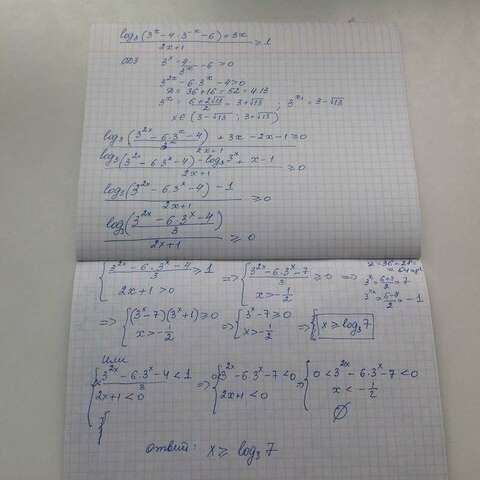 log₃(3ˣ-4·3⁻ˣ-6)+3x / 2x+1 ≥ 1
ОДЗ 3ˣ - 4/3ˣ - 6 > 0
3²ˣ - 6·3ˣ - 4 > 0
D = 36+16 = 52 = 4·13
3ˣ = (6+2√13)/2 = 3+√13 ; 3ˣ¹ = 3-√13
x ∈ (3-√13 ; 3+√13)
log₃((3²ˣ - 6·3ˣ - 4)/3ˣ) + 3x - 2x - 1 / 2x+1 ≥ 0
log₃(3²ˣ - 6·3ˣ - 4) - log₃3ˣ + x - 1 / 2x+1 ≥ 0
log₃(3²ˣ - 6·3ˣ - 4) - 1 / 2x+1 ≥ 0
log₃((3²ˣ - 6·3ˣ - 4)/3) / 2x+1 ≥ 0
{ (3²ˣ - 6·3ˣ - 4)/3 ≥ 1 ; 2x+1 > 0 => { (3²ˣ - 6·3ˣ - 7)/3 ≥ 0 ; x > -1/2 => 3ˣ = (6+8)/2 = 7 ; 3ˣ² = (6-8)/2 = -1
=> { (3ˣ-7)(3ˣ+1) ≥ 0 ; x > -1/2 => { 3ˣ - 7 ≥ 0 ; x > -1/2 => { x ≥ log₃7
или
{ (3²ˣ - 6·3ˣ - 4)/3 < 1 ; 2x+1 < 0 => { 3²ˣ - 6·3ˣ - 7 < 0 ; 2x+1 < 0 => { 0 < 3²ˣ - 6·3ˣ - 7 < 0 ; x < -1/2
∅
ответ: x ≥ log₃7